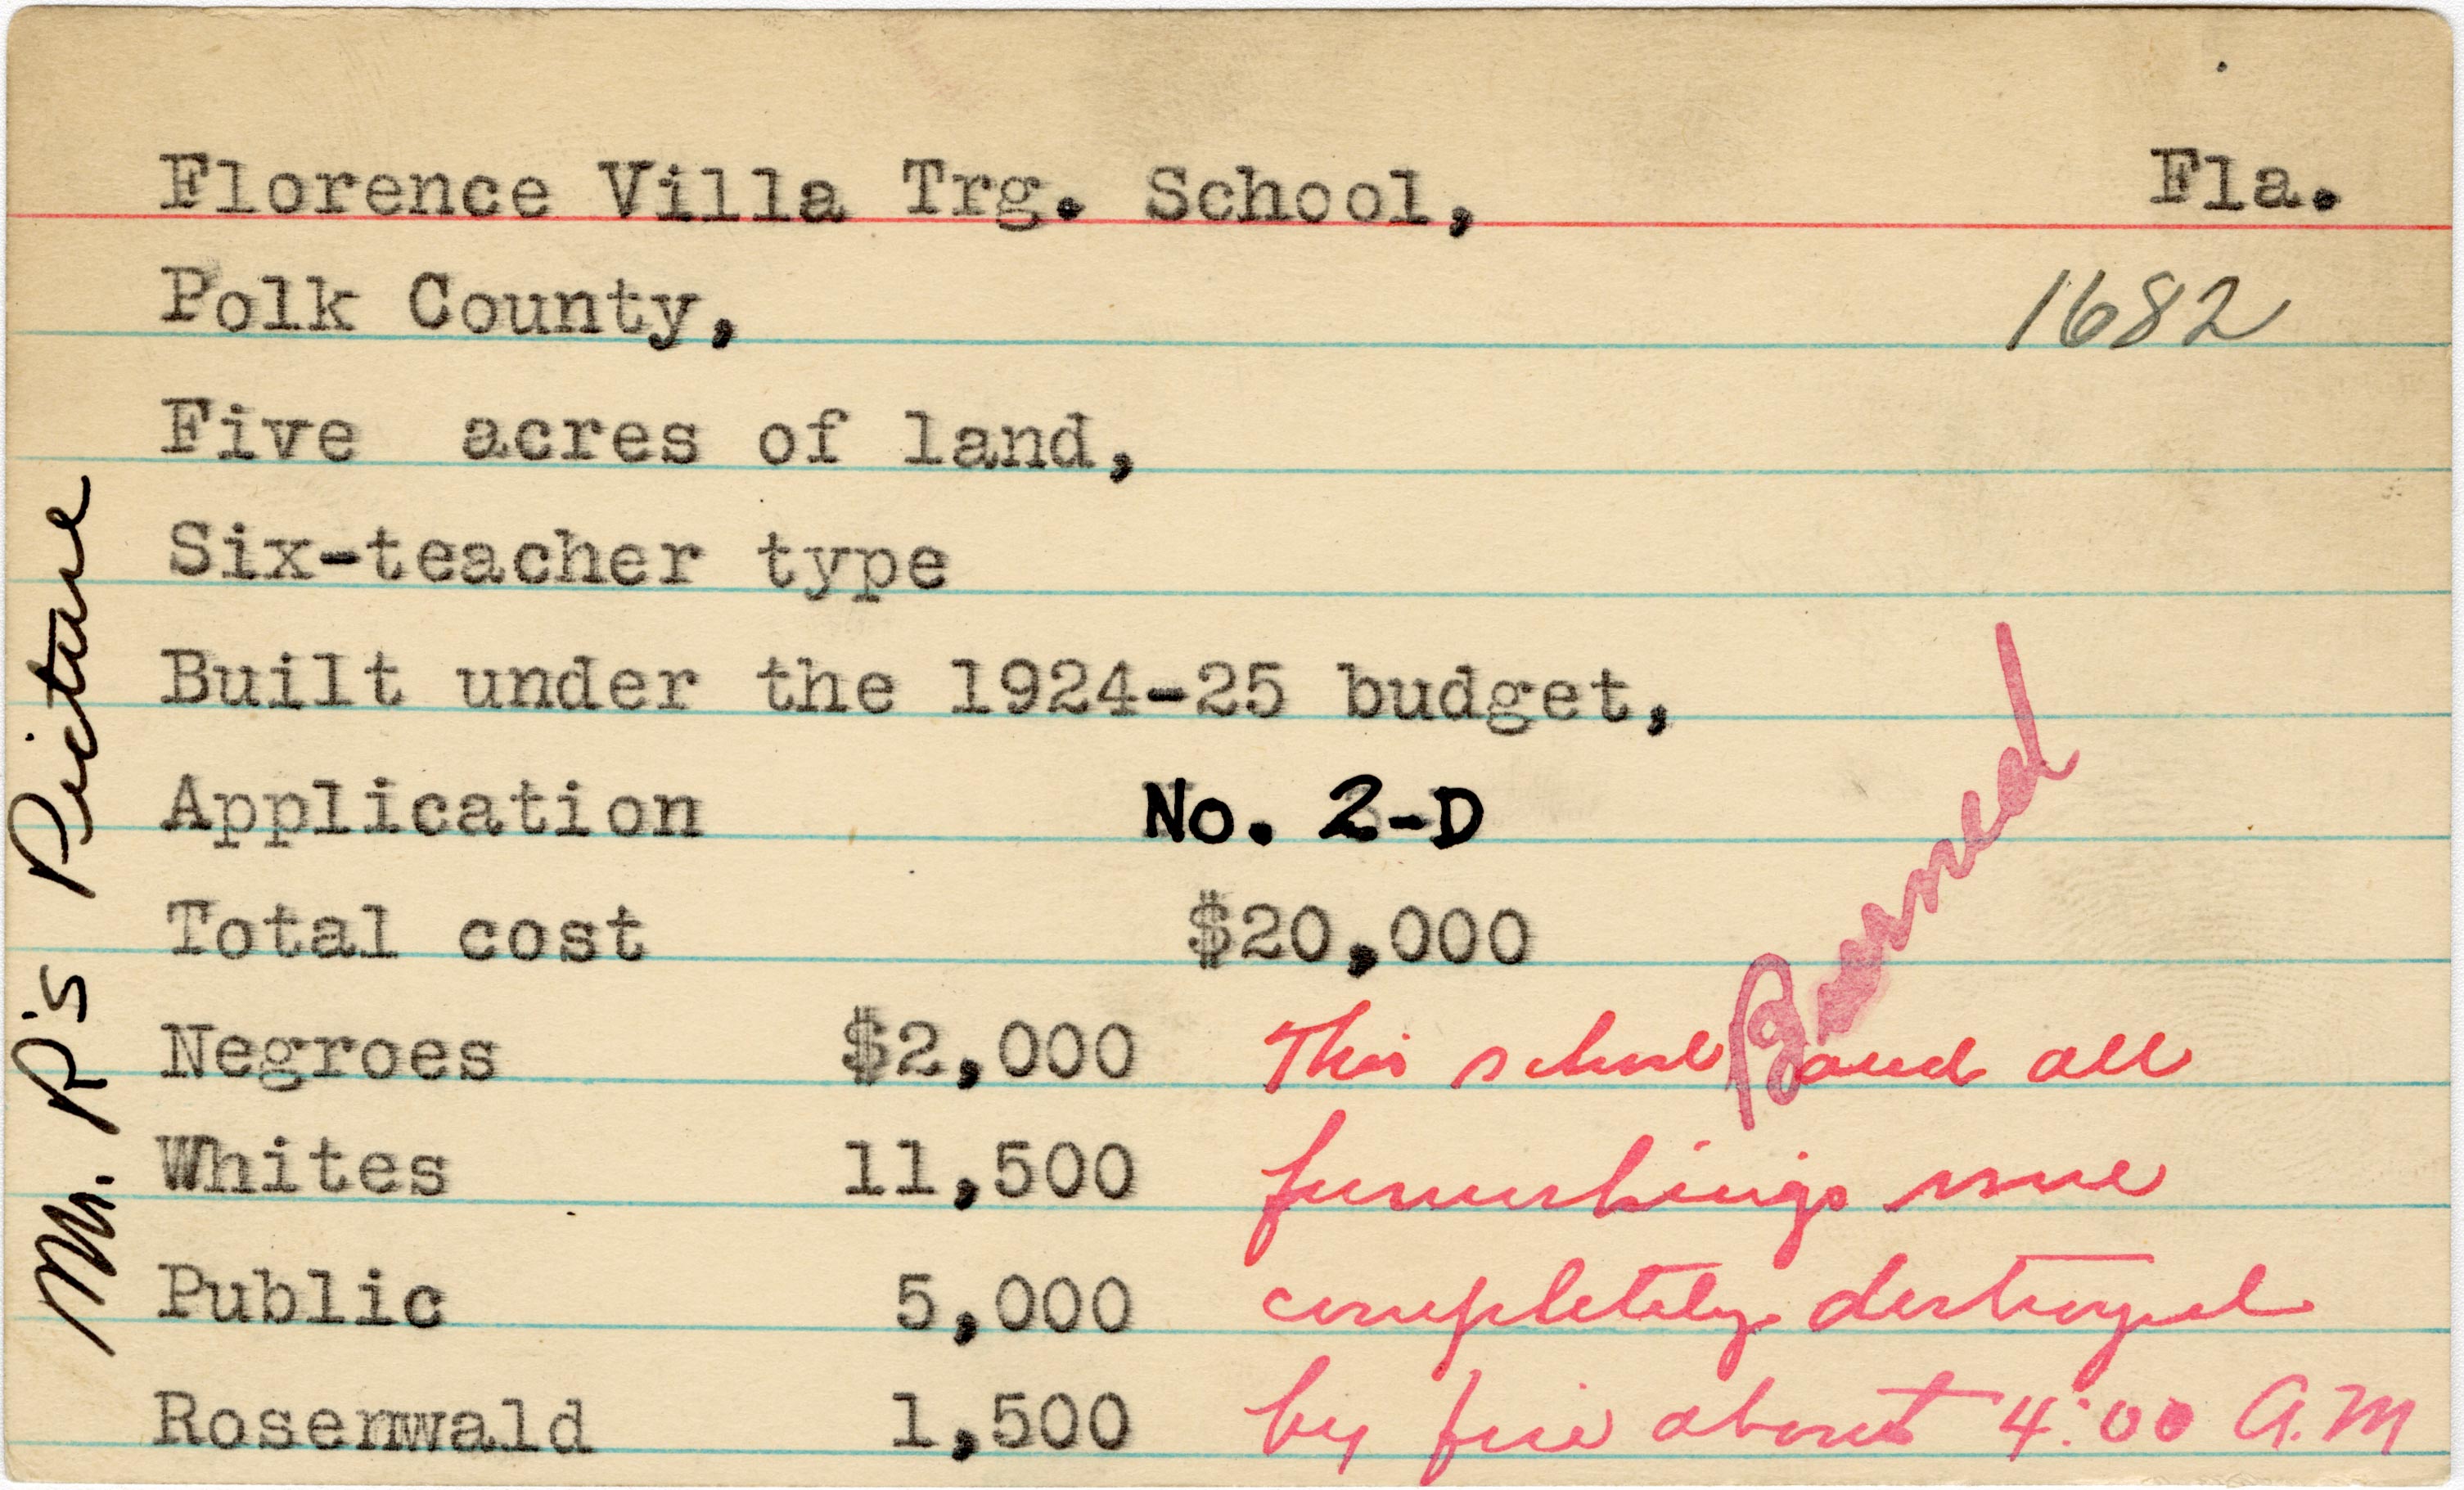 Florence Villa Trg. School, Fla.
Polk County, 1682
Five acres of land,
Six-teacher type
Built under the 1924-25 budget,
Application No. 2-D
Total cost $20,000
Negroes $2,000
Whites 11,500
Public 5,000
Rosenwald 1,500
This school and all
furnishings were
completely destroyed
by fire about 4:00 A.M
Burned
Mr. R's Picture